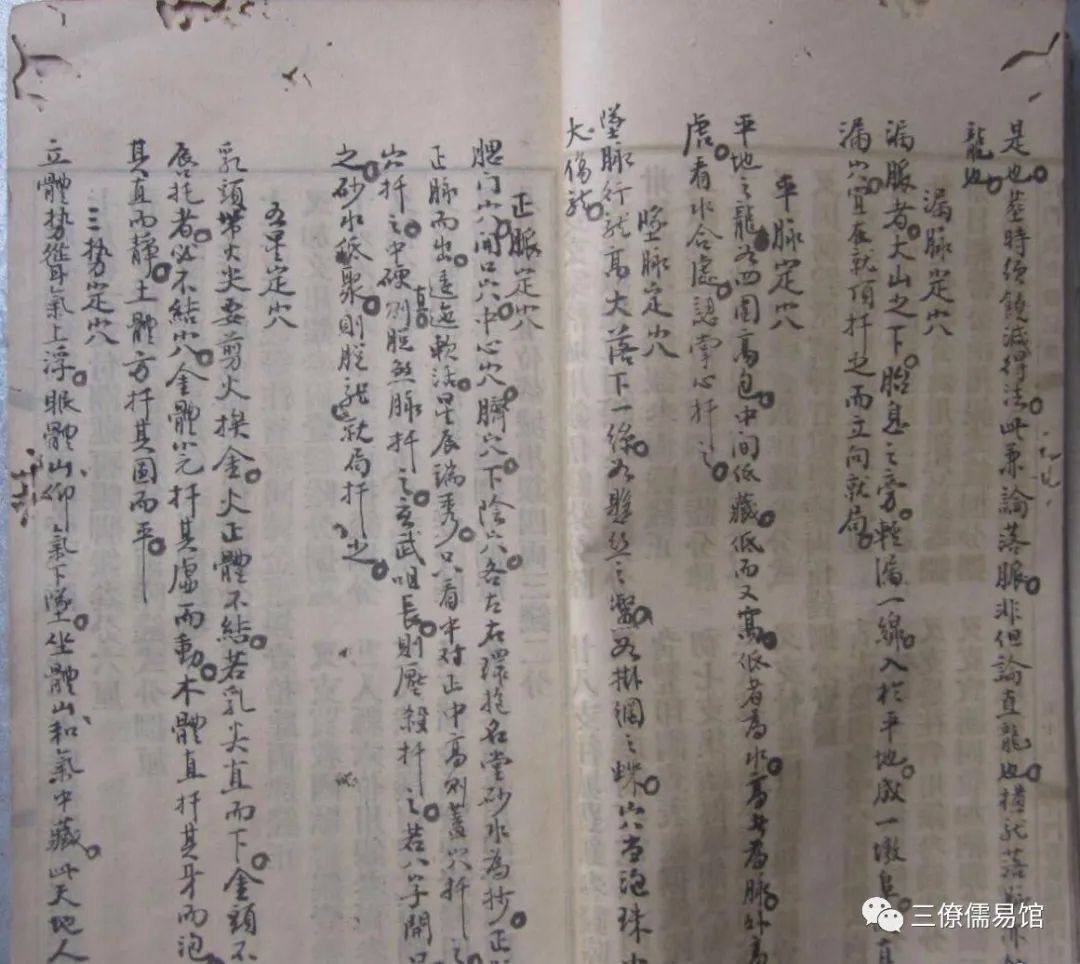 是也葢時須饒減得法此兼論落脈非但論直龍也猶龍落脈
龍也
漏脈定穴
漏脈者大山之下胎息之旁輕漏一線入於平地成一墩阜
漏穴宜在就頂扦之而立向就局
平脈定穴
平地之龍如四围高包中间低藏低而又寓低者為水高者為脈外高
虎看水合處認掌心扦之
墜脈定穴
墜脈行龍高大落下一條如懸絲之繫如掛網之蛛穴当泡珠
大傷龍
正脈定穴
腮门穴间口穴中心穴臍穴下陰穴各左右環抱名堂砂水為抄正
正脈而出逶迤軟活星辰端秀只看中对正中高則蓋穴扦之
穴扦之中硬則脱煞脉扦之玄武咀長則壓殺扦之若八字開口
直高
之砂水低聚則脱龍就局扦之
五星定穴
乳頭帶火尖要剪火換金火正體不結若乳尖直而下金頭不
唇托者必不結穴金體窩扦其虛而動木體直扦其牙而泡
其直而靜土體方扦其圆而平
三勢定穴
立體勢聳氣上浮眠體山仰氣下墜坐體山和氣中藏此天地人
三僚儒易馆